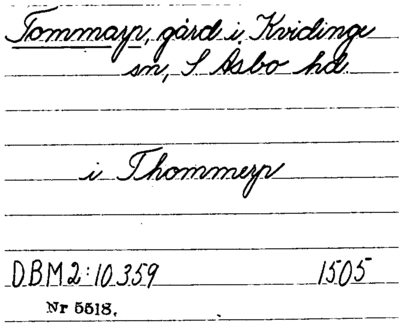 Tommarp, gård i Kvidinge
sn, S. Åsbo hd.
i Thommerp
DBM2:10.359 1505
Nr 5518.